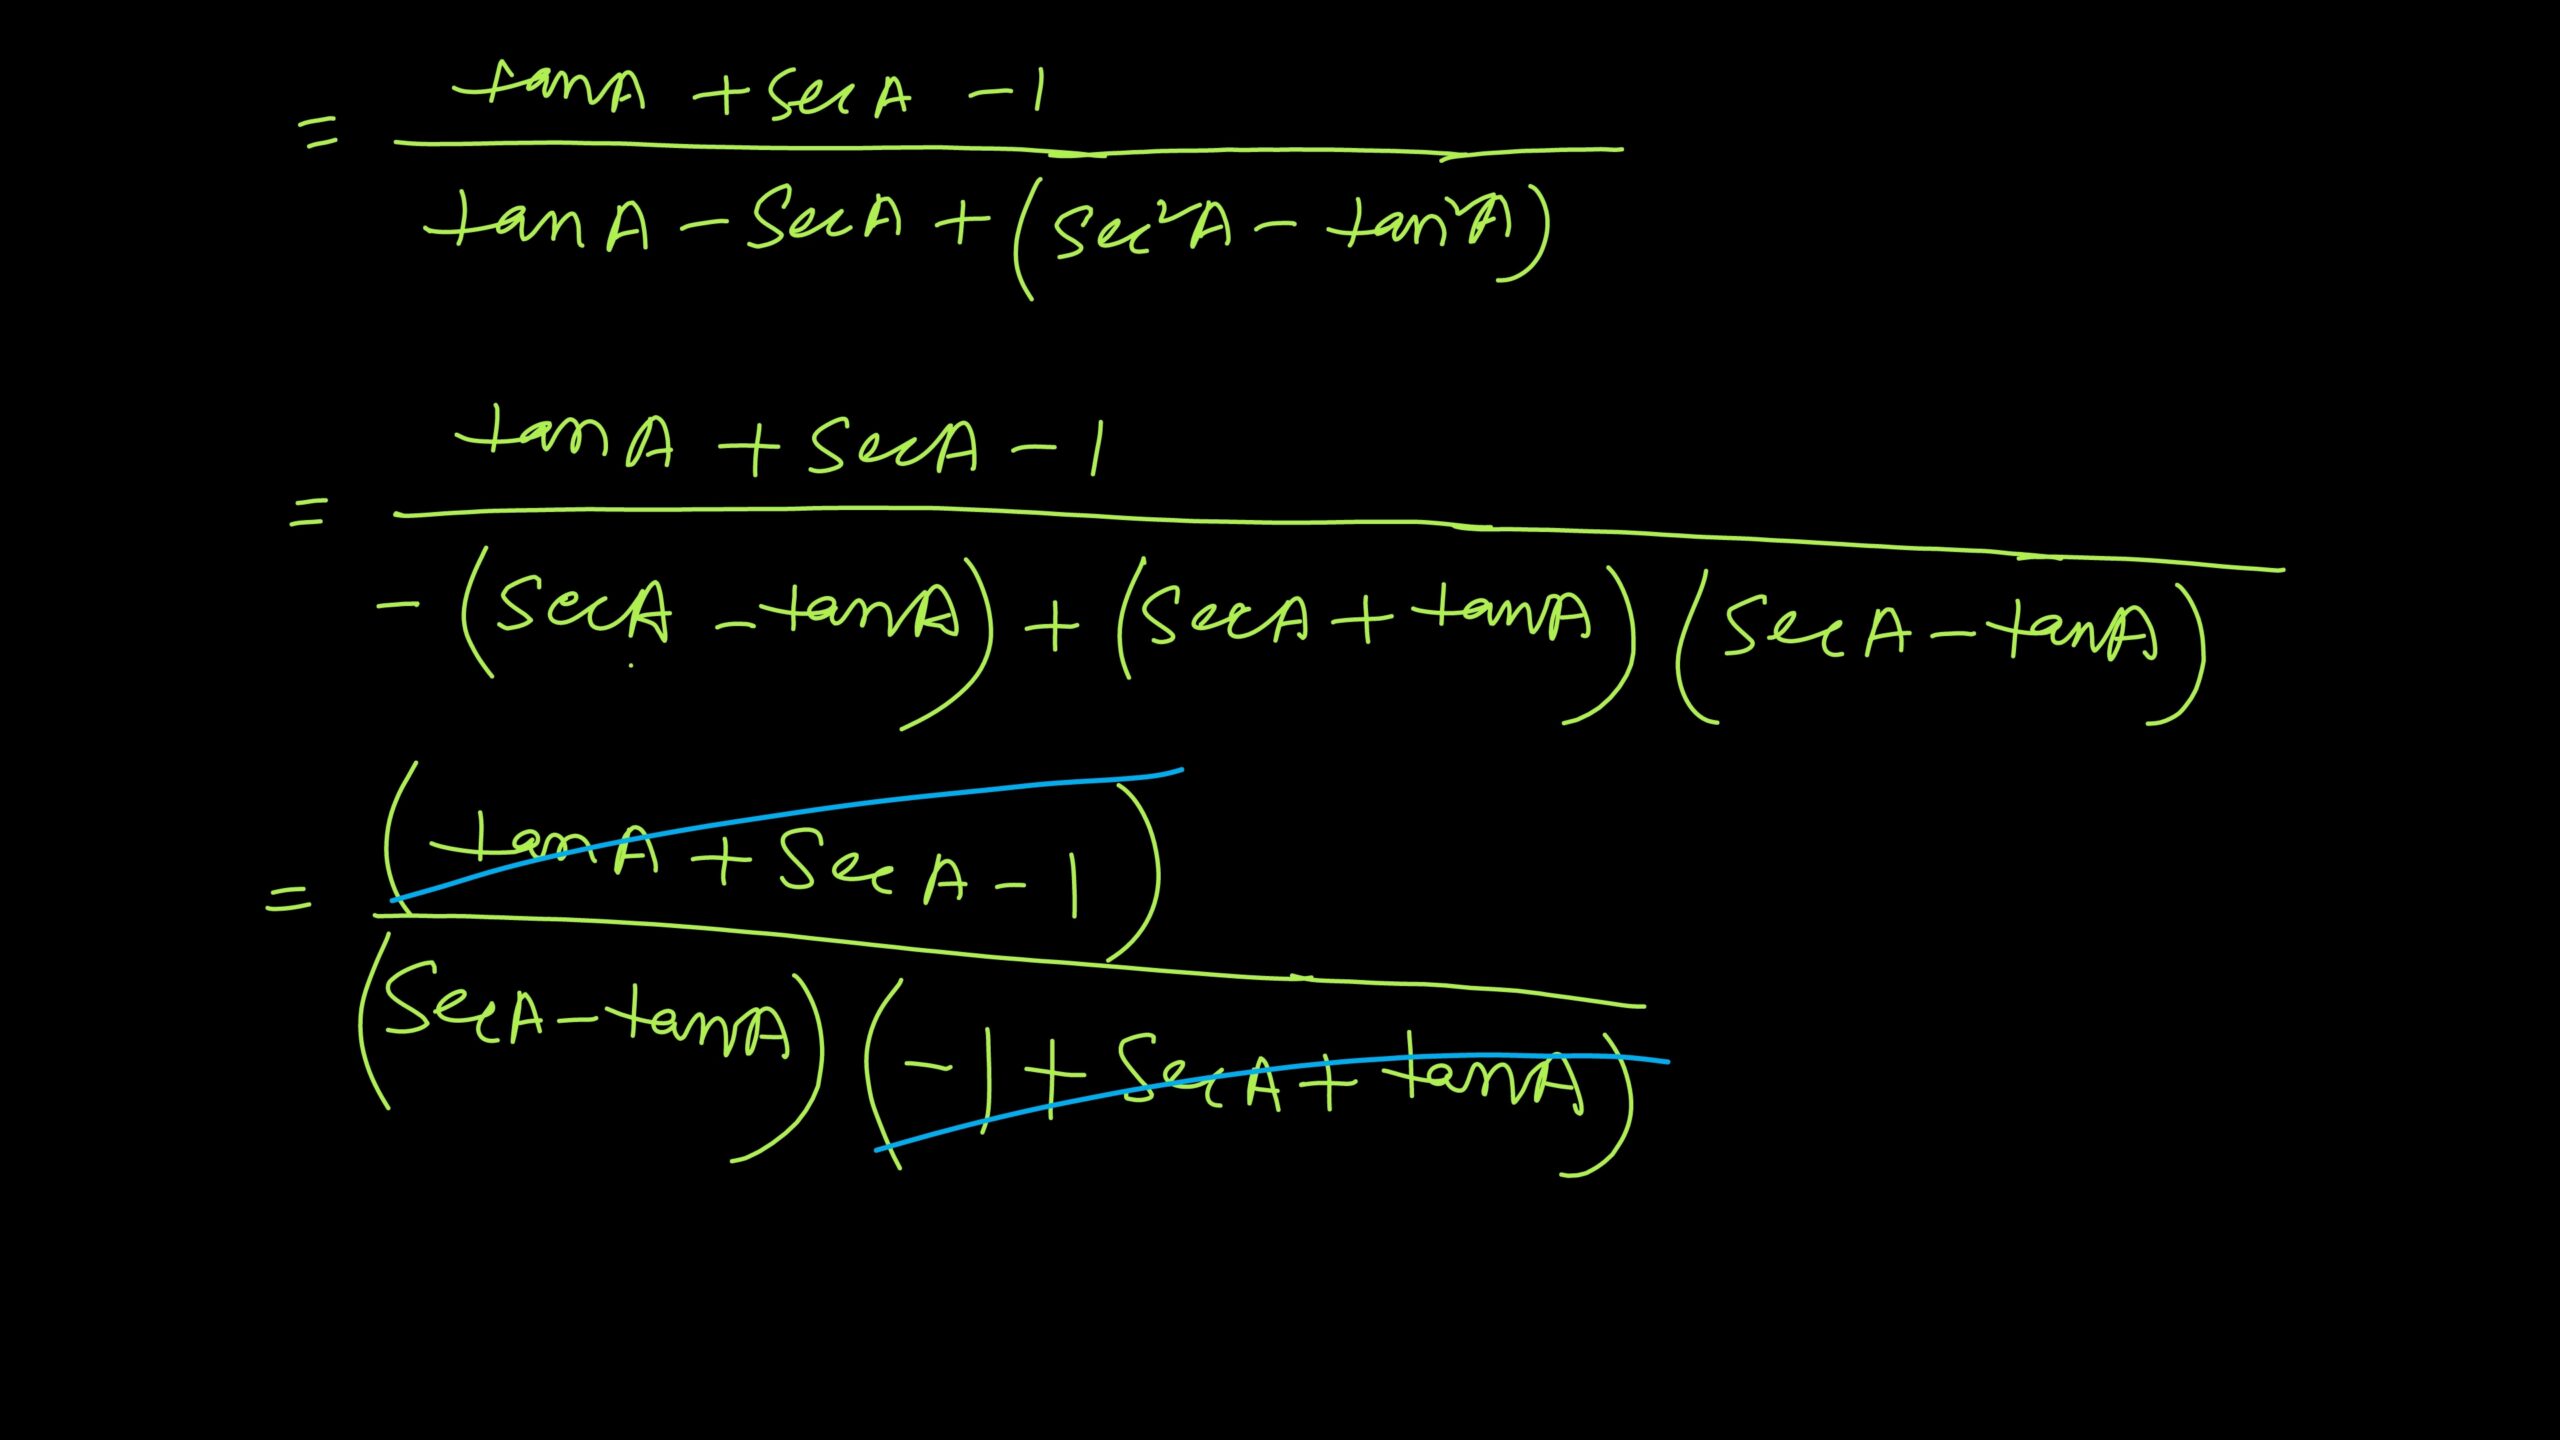 = tanA + secA - 1
tanA - secA + (sec²A - tan²A)
= tanA + secA - 1
-(secA - tanA) + (secA + tanA) (secA - tanA)
= (tanA + secA - 1)
(secA - tanA) (-1 + secA + tanA)